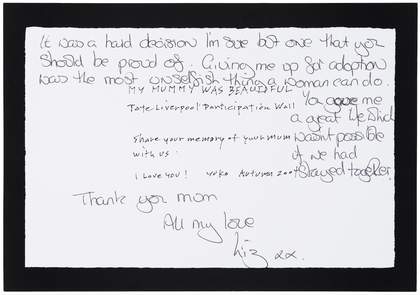 It was a hard decision I'm sure but one that you
should be proud of. Giving me up for adoption
was the most unselfish thing a woman can do.
MY MUMMY WAS BEAUTIFUL
Tate Liverpool Participation Wall
Share your memory of your mum
with us.
I love you! yoko Autumn 2004
You gave me
a great life which
wasn't possible
if we had
stayed together.
Thank you mom
All my love
Liz xx.